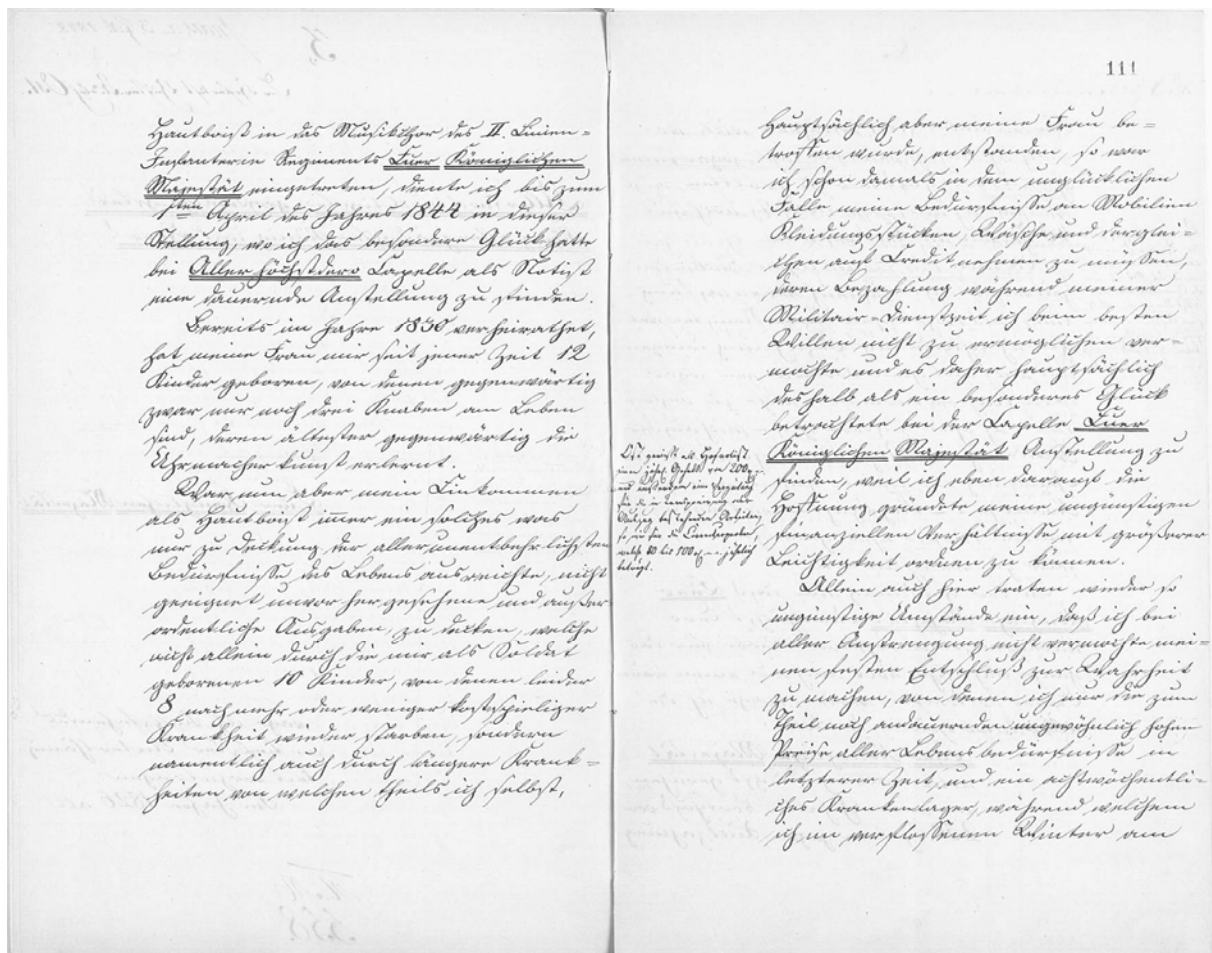 Hautboist in das Musikchor des II. Linien-
Infanterie Regiments Euer Königlichen
Majestät eingetreten, diente ich bis zum
1sten April des Jahres 1842 in dieser
Stellung, wo ich das besondere Glück hatte
bei Allerhöchstdero Capelle als Notist
eine dauernde Anstellung zu finden.
Bereits im Jahre 1830 verheirathet,
hat meine Frau mir seit jener Zeit 12
Kinder geboren, von denen gegenwärtig
zwar nur noch drei Knaben am Leben
sind, deren ältester gegenwärtig die
Uhrmacherkunst erlernt.
War nun aber mein Einkommen
als Hautboist immer ein solches was
nur zu Deckung der allerunentbehrlichsten
Bedürfnisse des Lebens ausreichte, nicht
geeignet unvorhergesehene und außer
ordentliche Ausgaben, zu decken, welche
nicht allein durch die mir als Soldat
geborenen 10 Kinder, von denen leider
8 nach mehr oder weniger kostspieliger
Krankheit wieder starben, sondern
namentlich auch durch längere Krank-
heiten von welchen theils ich selbst,
111
hauptsächlich aber meine Frau be-
troffen wurde, entstanden, so war
ich schon damals in dem unglücklichen
Falle meine Bedürfnisse an Mobilien
Kleidungsstücken, Wäsche und derglei-
chen auf Credit nehmen zu müssen,
deren Bezahlung während meiner
Militair-Dienstzeit ich beim besten
Willen nicht zu ermöglichen ver-
mochte und es daher hauptsächlich
deshalb als ein besonderes Glück
betrachtete bei der Capelle Euer
Königlichen Majestät Anstellung zu
finden, weil ich eben darauf die
Hoffnung gründete meine ungünstigen
finanziellen Verhältnisse mit größerer
Leichtigkeit ordnen zu können.
Allein auch hier traten wieder so
ungünstige Umstände ein, daß ich bei
aller Anstrengung nicht vermochte mei-
nen festen Entschluß zur Wahrheit
zu machen, von denen ich nur die zum
Theil noch andauernden ungewöhnlich hohen
Preise aller Lebensbedürfnisse in
letzterer Zeit, und ein achtwöchentli-
ches Krankenlager, während welchem
ich im verflossenen Winter am
jährl. Gehalt von 200
jährlich
beträgt.